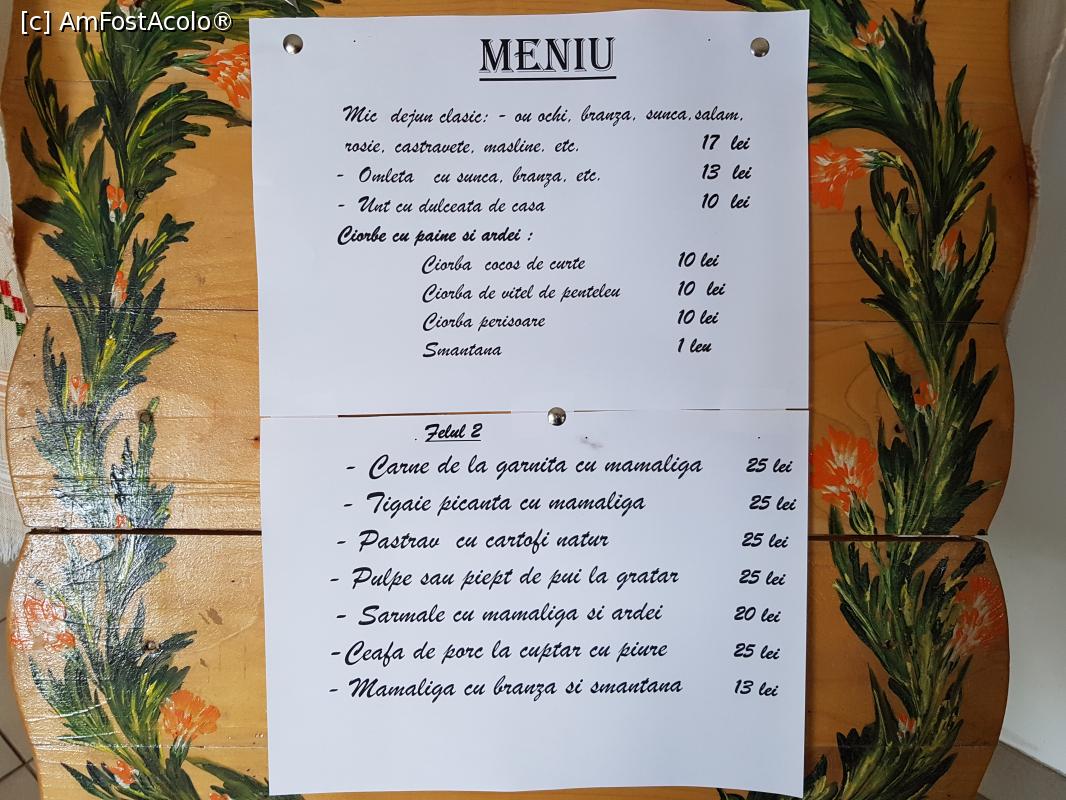 [c] AmFostAcolo®
MENIU
Mic dejun clasic: - ou ochi, branza, sunca, salam,
rosie, castravete, masline, etc. 17 lei
- Omleta cu sunca, branza, etc. 13 lei
- Unt cu dulceata de casa 10 lei
Ciorbe cu paine si ardei :
Ciorba cocos de curte 10 lei
Ciorba de vitel de penteleu 10 lei
Ciorba perisoare 10 lei
Smantana 1 leu
Felul 2
- Carne de la garnita cu mamaliga 25 lei
- Tigaie picanta cu mamaliga 25 lei
- Pastrav cu cartofi natur 25 lei
- Pulpe sau piept de pui la gratar 25 lei
- Sarmale cu mamaliga si ardei 20 lei
- Ceafa de porc la cuptar cu piure 25 lei
- Mamaliga cu branza si smantana 13 lei